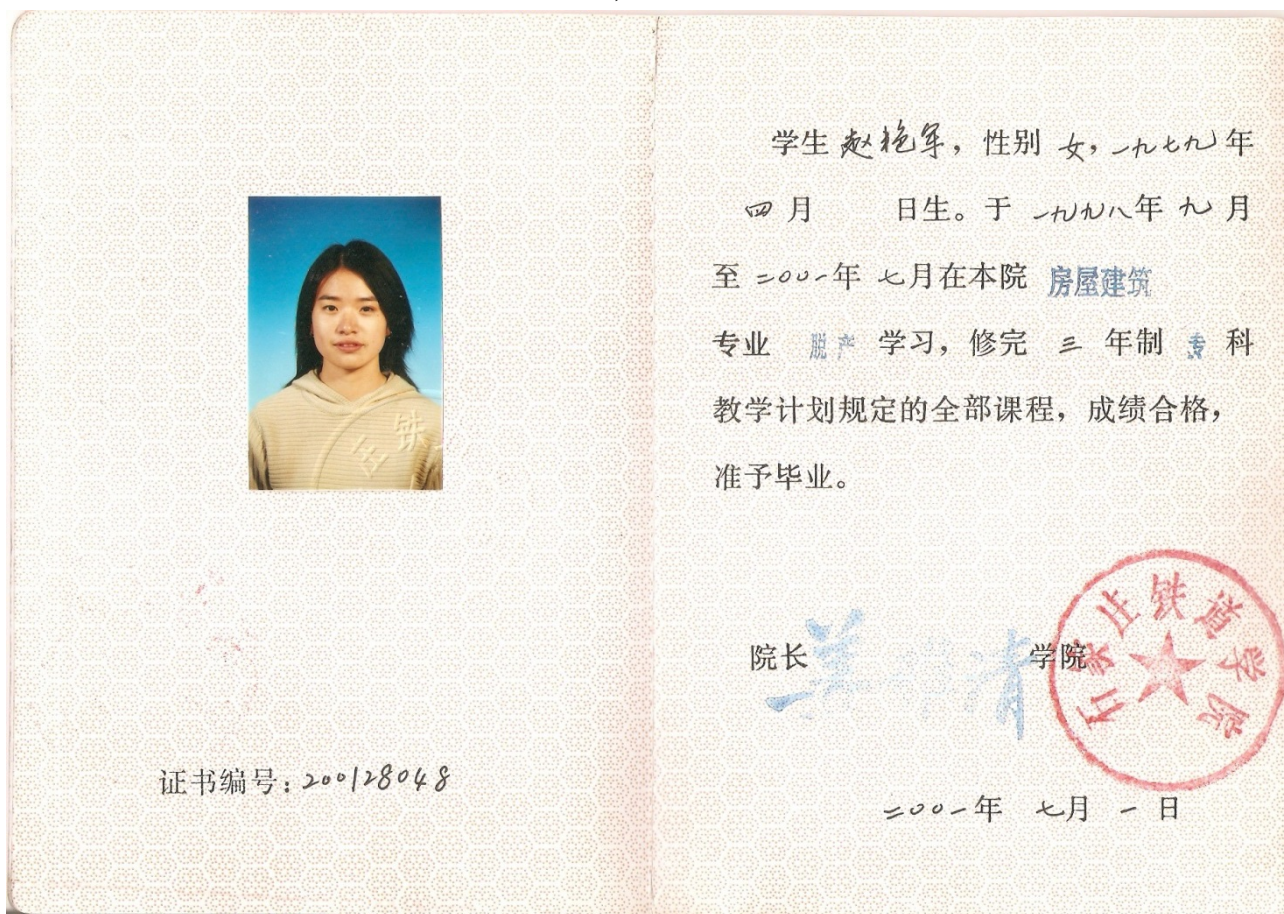 石铁
证书编号：200128048
学生 赵艳军，性别 女，一九七九年
四月 日生。于 一九九八年 九月
至 二〇〇一年 七月在本院 房屋建筑
专业 脱产 学习，修完 三 年制 专 科
教学计划规定的全部课程，成绩合格，
准予毕业。
院长 学院
石家庄铁道学院
二〇〇一年 七月 一日